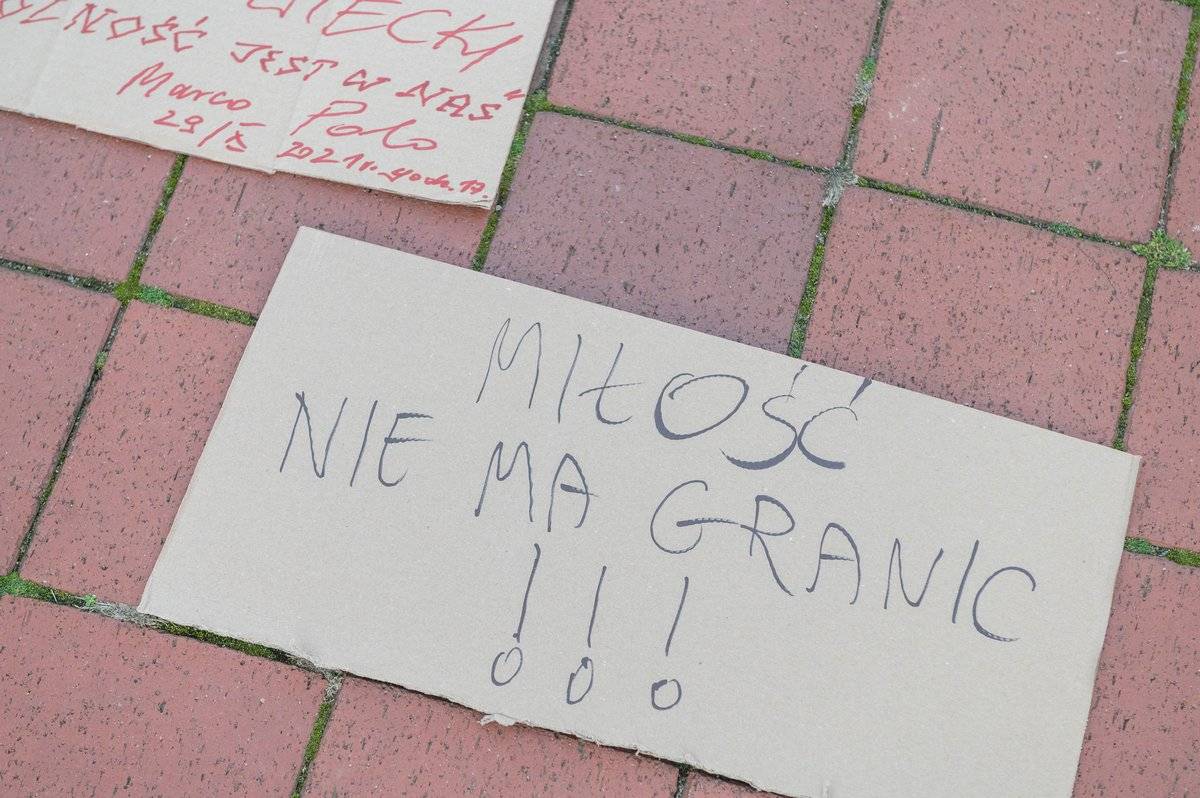 JEST W NAS"
Marco Polo
29/X 2021r. godz. 17.
MIŁOŚĆ
NIE MA GRANIC
!!!